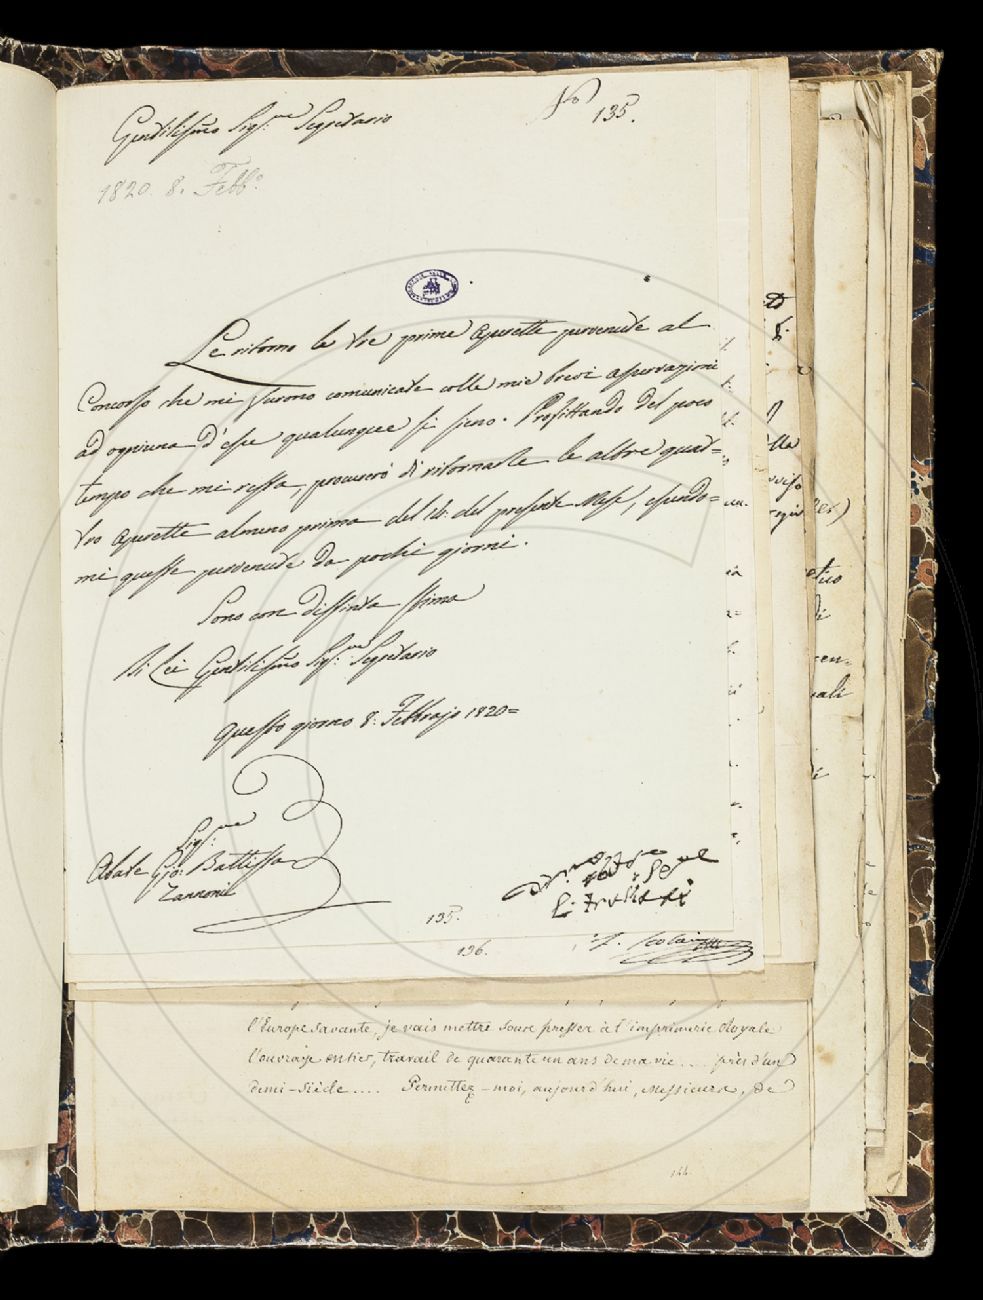 N° 135.
Gentilissmo Sig.re Segretario
1820. 8. Febb°.
Le ritorno le tre prime Operette pervenute al
Concorso che mi furono comunicate colle mie brevi osservazioni
ad ogniuna d'esse qualunque si sieno. Profittando del poco
tempo che mi resta, procurerò di ritornarle le altre quat=
tro Operette almeno prima del 14. del presente Mese, essendo=
mi queste pervenute da pochi giorni.
Sono con distinta stima
Di Lei Gentilissmo Sig.re Segretario
Questo giorno 8. Febbrajo 1820=
Sig.re
Abate Gio: Battista
Zannoni
135.
136.
l'Europe savante, je vais mettre sous presser à l'imprimerie Royale
l'ouvrage entier, travail de quarante un ans de ma vie.... près d'un
demi-siècle.... Permettez-moi, aujourd'hui, Messieurs, de
144.